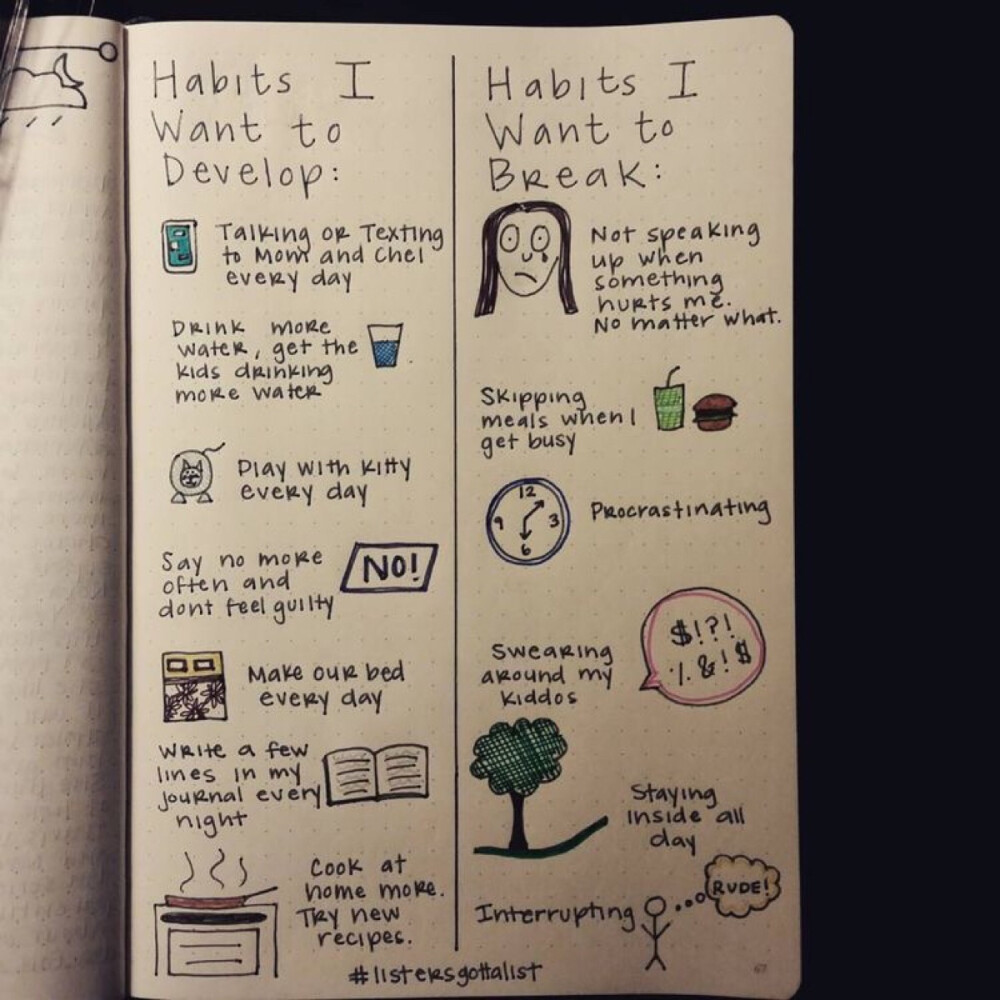 Habits I
Want to
Develop:
Talking or Texting
to Mom and Chel
every day
Drink more
water, get the
kids drinking
more water
Play with kitty
every day
Say no more
often and
dont feel guilty
NO!
Make our bed
every day
Write a few
lines in my
journal every
night
Cook at
home more.
Try new
recipes.
Habits I
Want to
Break:
Not speaking
up when
something
hurts me.
No matter what.
Skipping
meals when I
get busy
12
9 3
6
Procrastinating
$!?!
%&!$
Swearing
around my
kiddos
Staying
inside all
day
RUDE!
Interrupting
#listersgottalist
67